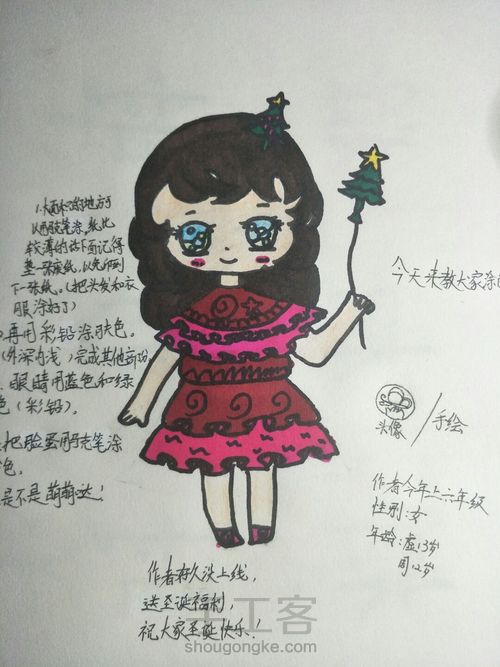 以用马克笔涂,纸比
较薄的话下面记得
垫一张废纸,以免印到
下一张纸。(把头发和衣
服涂好了)
再用彩铅涂肤色。
(外深内浅)完成其他部分
眼睛用蓝色和绿
色(彩铅)。
把脸蛋用马克笔涂
色。
是不是萌萌哒!
今天来教大家涂
头像
/手绘
作者今年上六年级
性别:女
年龄:虚13岁
周12岁
作者好久没上线,
送圣诞福利,
祝大家圣诞快乐!
手工客
shougongke.com